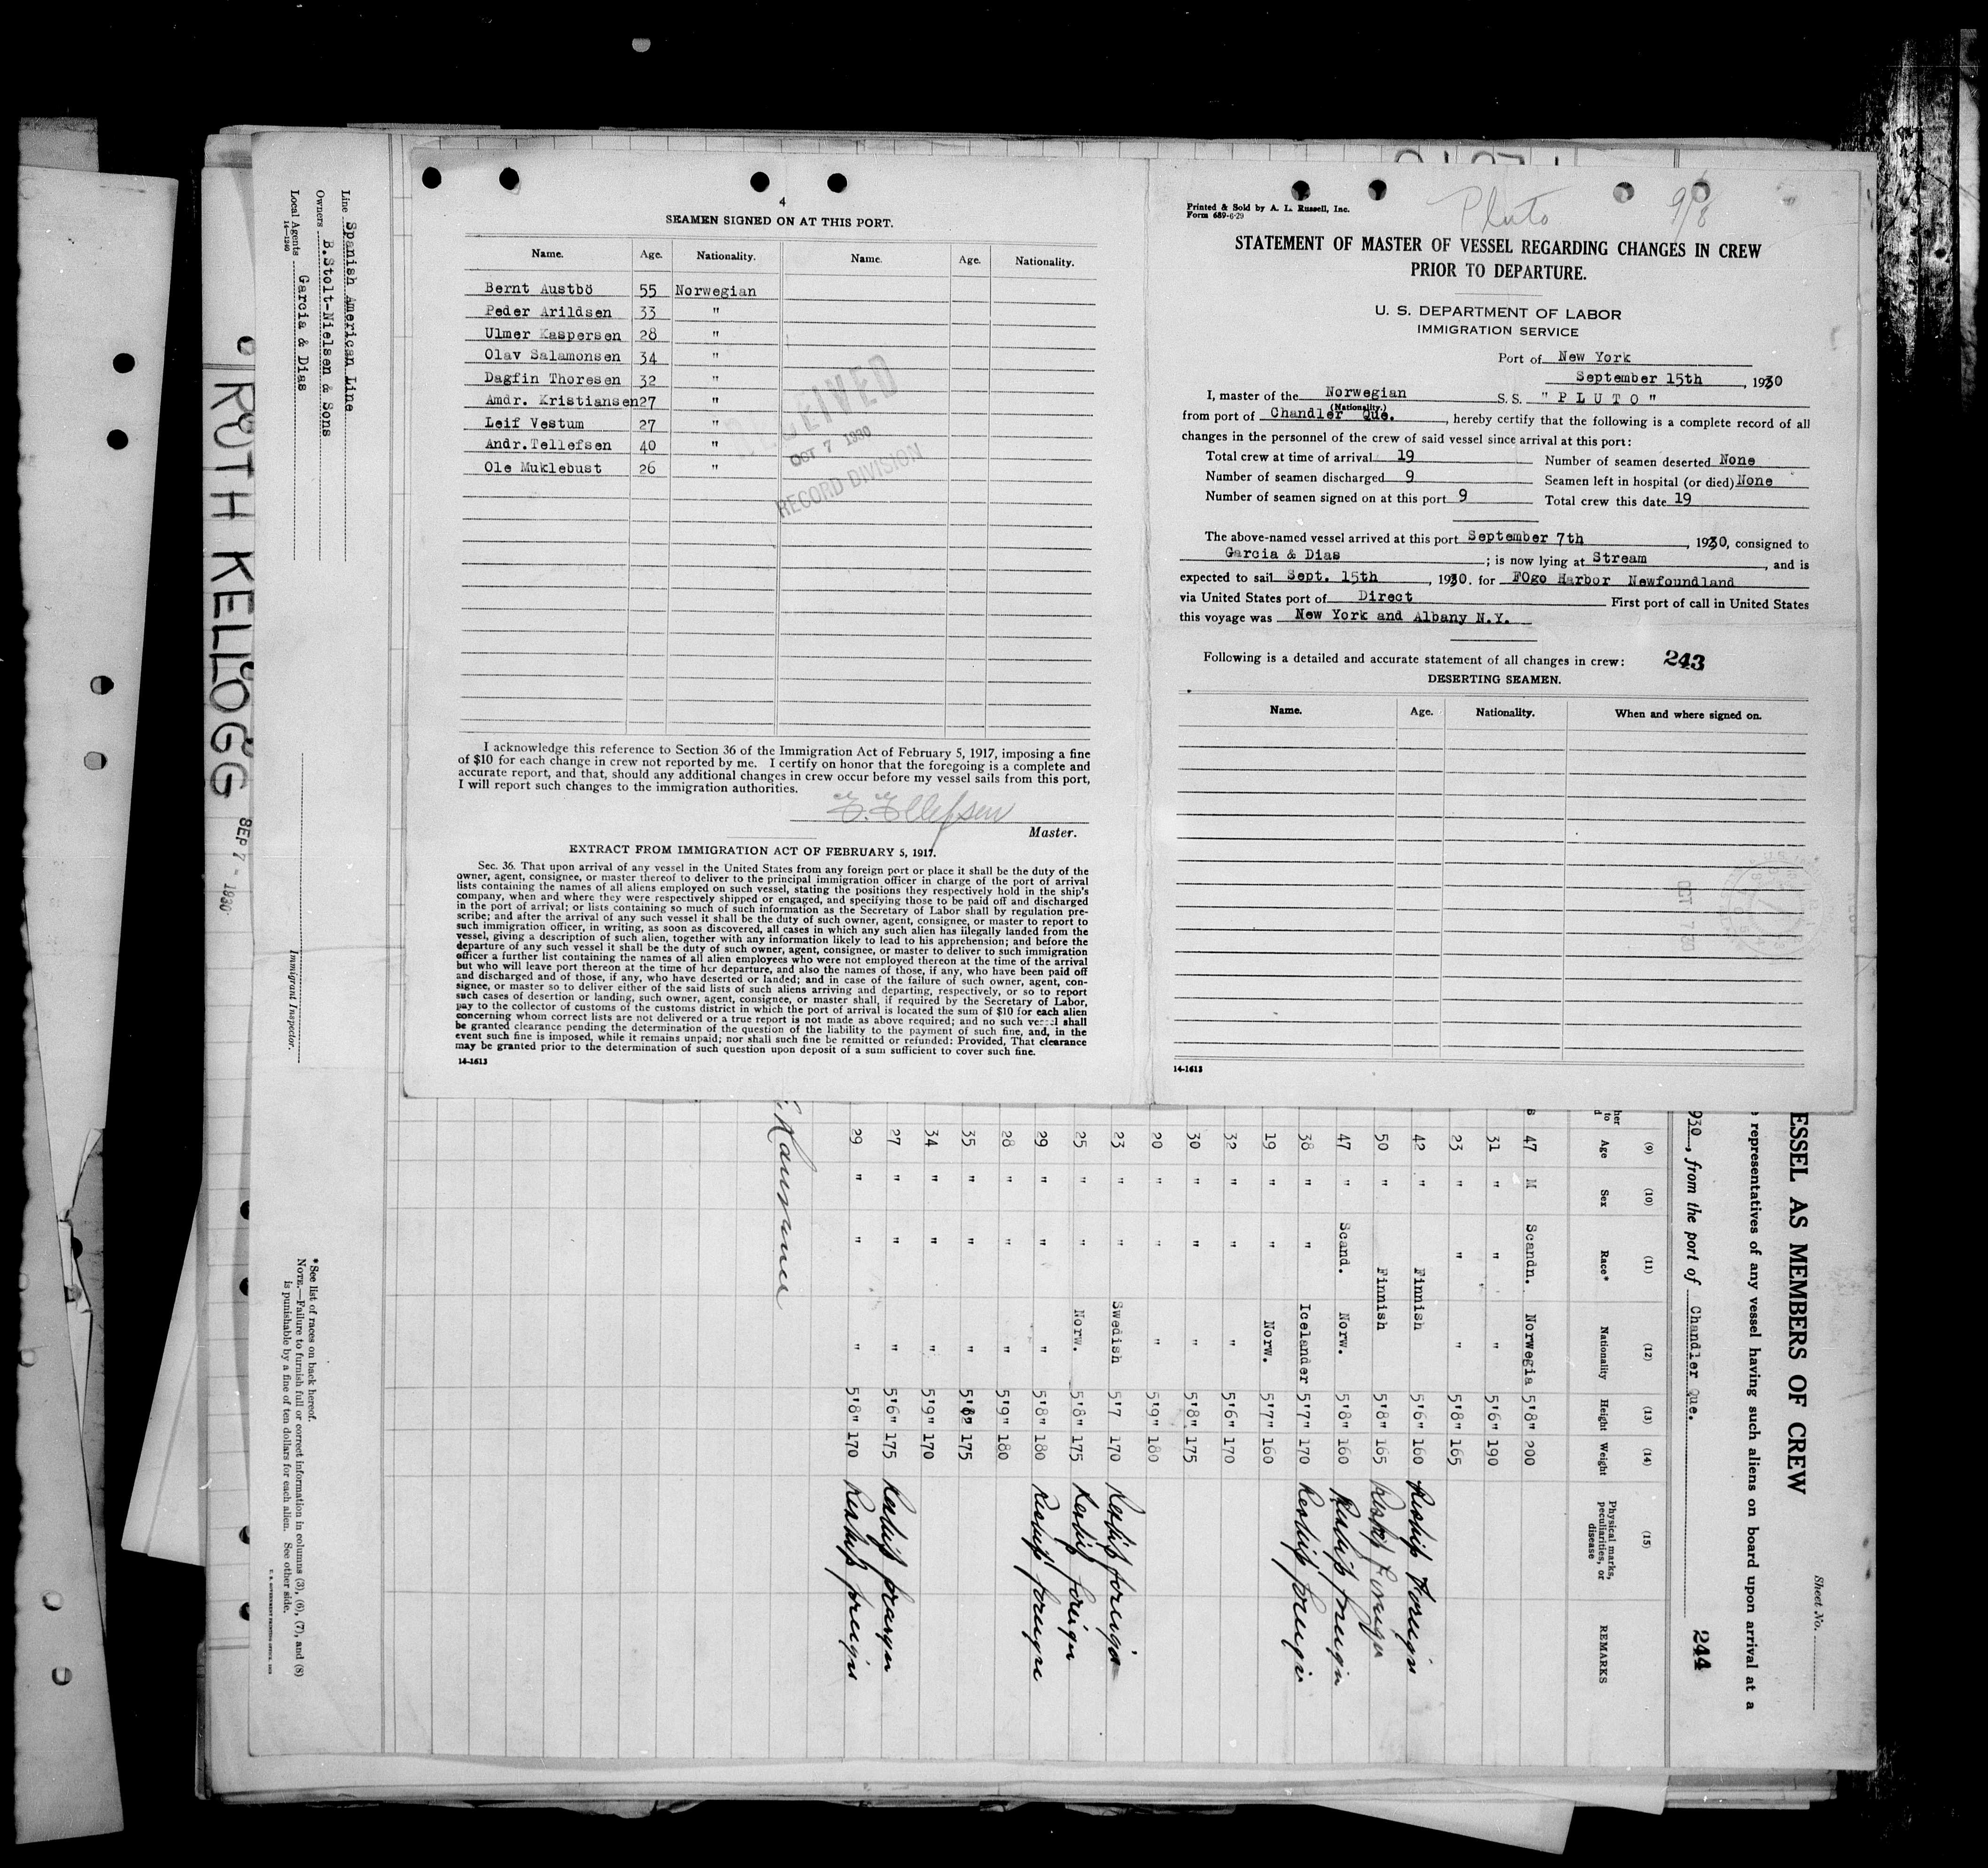 4
SEAMEN SIGNED ON AT THIS PORT.
Name. Age. Nationality. Name. Age. Nationality.
Bernt Austbö 55 Norwegian
Peder Arildsen 33 "
Ulmer Kaspersen 28 "
Olav Salamonsen 34 "
Dagfin Thoresen 32 "
Amdr. Kristiansen 27 "
Leif Vestum 27 "
Andr.Tellefsen 40 "
Ole Muklebust 26 "
RECEIVED
OCT 7 1930
RECORD DIVISION
I acknowledge this reference to Section 36 of the Immigration Act of February 5, 1917, imposing a fine
of $10 for each change in crew not reported by me. I certify on honor that the foregoing is a complete and
accurate report, and that, should any additional changes in crew occur before my vessel sails from this port,
I will report such changes to the immigration authorities.
Master.
EXTRACT FROM IMMIGRATION ACT OF FEBRUARY 5, 1917.
Sec. 36. That upon arrival of any vessel in the United States from any foreign port or place it shall be the duty of the
owner, agent, consignee, or master thereof to deliver to the principal immigration officer in charge of the port of arrival
lists containing the names of all aliens employed on such vessel, stating the positions they respectively hold in the ship's
company, when and where they were respectively shipped or engaged, and specifying those to be paid off and discharged
in the port of arrival; or lists containing so much of such information as the Secretary of Labor shall by regulation pre-
scribe; and after the arrival of any such vessel it shall be the duty of such owner, agent, consignee, or master to report to
such immigration officer, in writing, as soon as discovered, all cases in which any such alien has illegally landed from the
vessel, giving a description of such alien, together with any information likely to lead to his apprehension; and before the
departure of any such vessel it shall be the duty of such owner, agent, consignee, or master to deliver to such immigration
officer a further list containing the names of all alien employees who were not employed thereon at the time of the arrival
but who will leave port thereon at the time of her departure, and also the names of those, if any, who have been paid off
and discharged and of those, if any, who have deserted or landed; and in case of the failure of such owner, agent, con-
signee, or master so to deliver either of the said lists of such aliens arriving and departing, respectively, or so to report
such cases of desertion or landing, such owner, agent, consignee, or master shall, if required by the Secretary of Labor,
pay to the collector of customs of the customs district in which the port of arrival is located the sum of $10 for each alien
concerning whom correct lists are not delivered or a true report is not made as above required; and no such vessel shall
be granted clearance pending the determination of the question of the liability to the payment of such fine, and, in the
event such fine is imposed, while it remains unpaid; nor shall such fine be remitted or refunded: Provided, That clearance
may be granted prior to the determination of such question upon deposit of a sum sufficient to cover such fine.
14-1613
Printed & Sold by A. L. Russell, Inc.
Form 689-6-29
Pluto 9/8
STATEMENT OF MASTER OF VESSEL REGARDING CHANGES IN CREW
PRIOR TO DEPARTURE.
U. S. DEPARTMENT OF LABOR
IMMIGRATION SERVICE
Port of New York
September 15th, 1930
I, master of the Norwegian S.S. "PLUTO"
(Nationality.)
from port of Chandler Que., hereby certify that the following is a complete record of all
changes in the personnel of the crew of said vessel since arrival at this port:
Total crew at time of arrival 19 Number of seamen deserted None
Number of seamen discharged 9 Seamen left in hospital (or died) None
Number of seamen signed on at this port 9 Total crew this date 19
The above-named vessel arrived at this port September 7th, 1930, consigned to
Garcia & Dias; is now lying at Stream, and is
expected to sail Sept. 15th, 1930. for FOgo Harbor Newfoundland
via United States port of Direct First port of call in United States
this voyage was New York and Albany N.Y.
Following is a detailed and accurate statement of all changes in crew: 243
DESERTING SEAMEN.
Name. Age. Nationality. When and where signed on.
OCT 7 30
14-1613
Line Spanish American Line
Owners B.Stolt-Nielsen & Sons
Local Agents Garcia & Dias
14-1240
Immigrant Inspector.
RUTH KELLOGG SEP 7 - 1930
*See list of races on back hereof.
NOTE.—Failure to furnish full or correct information in columns (3), (6), (7), and (8)
is punishable by a fine of ten dollars for each alien. See other side.
Sheet No.
ESSEL AS MEMBERS OF CREW
representatives of any vessel having such aliens on board upon arrival at a
930, from the port of Chandler Que. 244
(9) (10) (11) (12) (13) (14) (15)
Age Sex Race* Nationality Height Weight Physical marks, peculiarities, or disease REMARKS
47 M Scandn. Norwegia 5'8" 200
31 " " " 5'6" 190
23 " " " 5'8" 165
42 " Finnish 5'6" 160 Reship Foreign
50 " Finnish 5'8" 165 Reship Foreign
47 " Scand. Norw. 5'8" 160 Reship foreign
38 " " Icelander 5'7" 170 Reship foreign
19 " " Norw. 5'7" 160
32 " " " 5'6" 170
30 " " " 5'8" 175
20 " " " 5'9" 180
23 " " Swedish 5'7 170 Reship foreign
25 " " Norw. 5'8" 175 Reship foreign
29 " " " 5'8" 180 Reship foreign
28 " " " 5'9" 180
35 " " " 175
34 " " " 5'9" 170
27 " " " 5'6" 175 Reship foreign
29 " " " 5'8" 170 Reship foreign